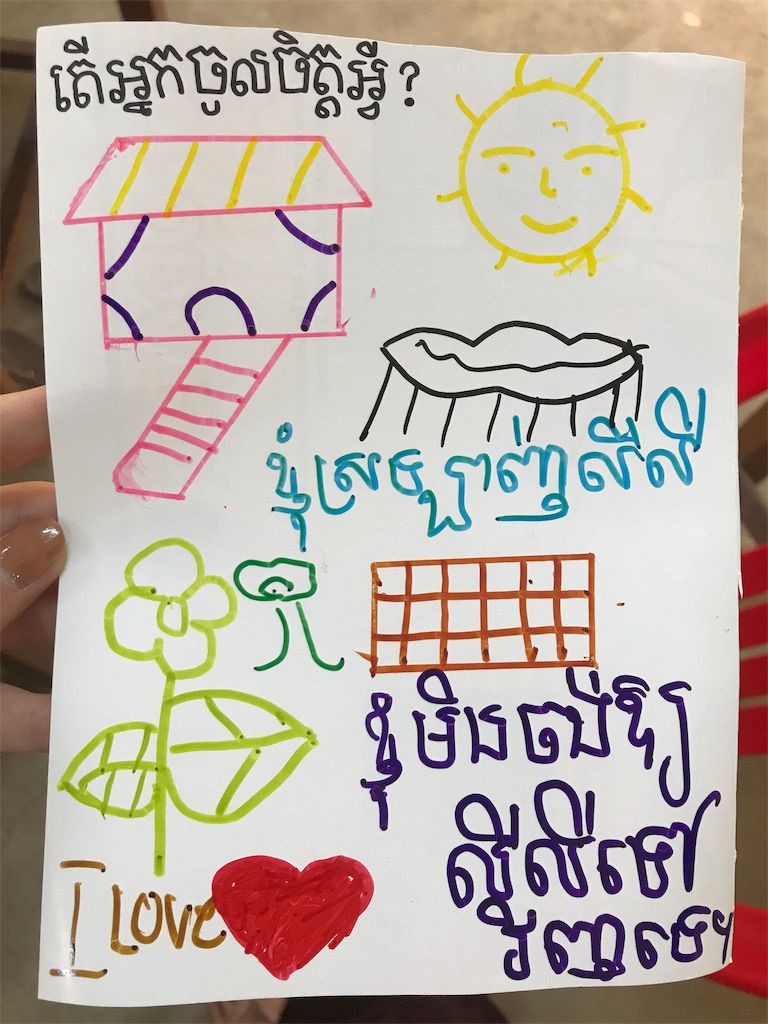 តើអ្នកចូលចិត្តអ្វី?
ខ្ញុំស្រឡាញ់លីលី
ខ្ញុំមិនចង់ឱ្យ
លីលីទៅ
វិញទេ។
I LOVE